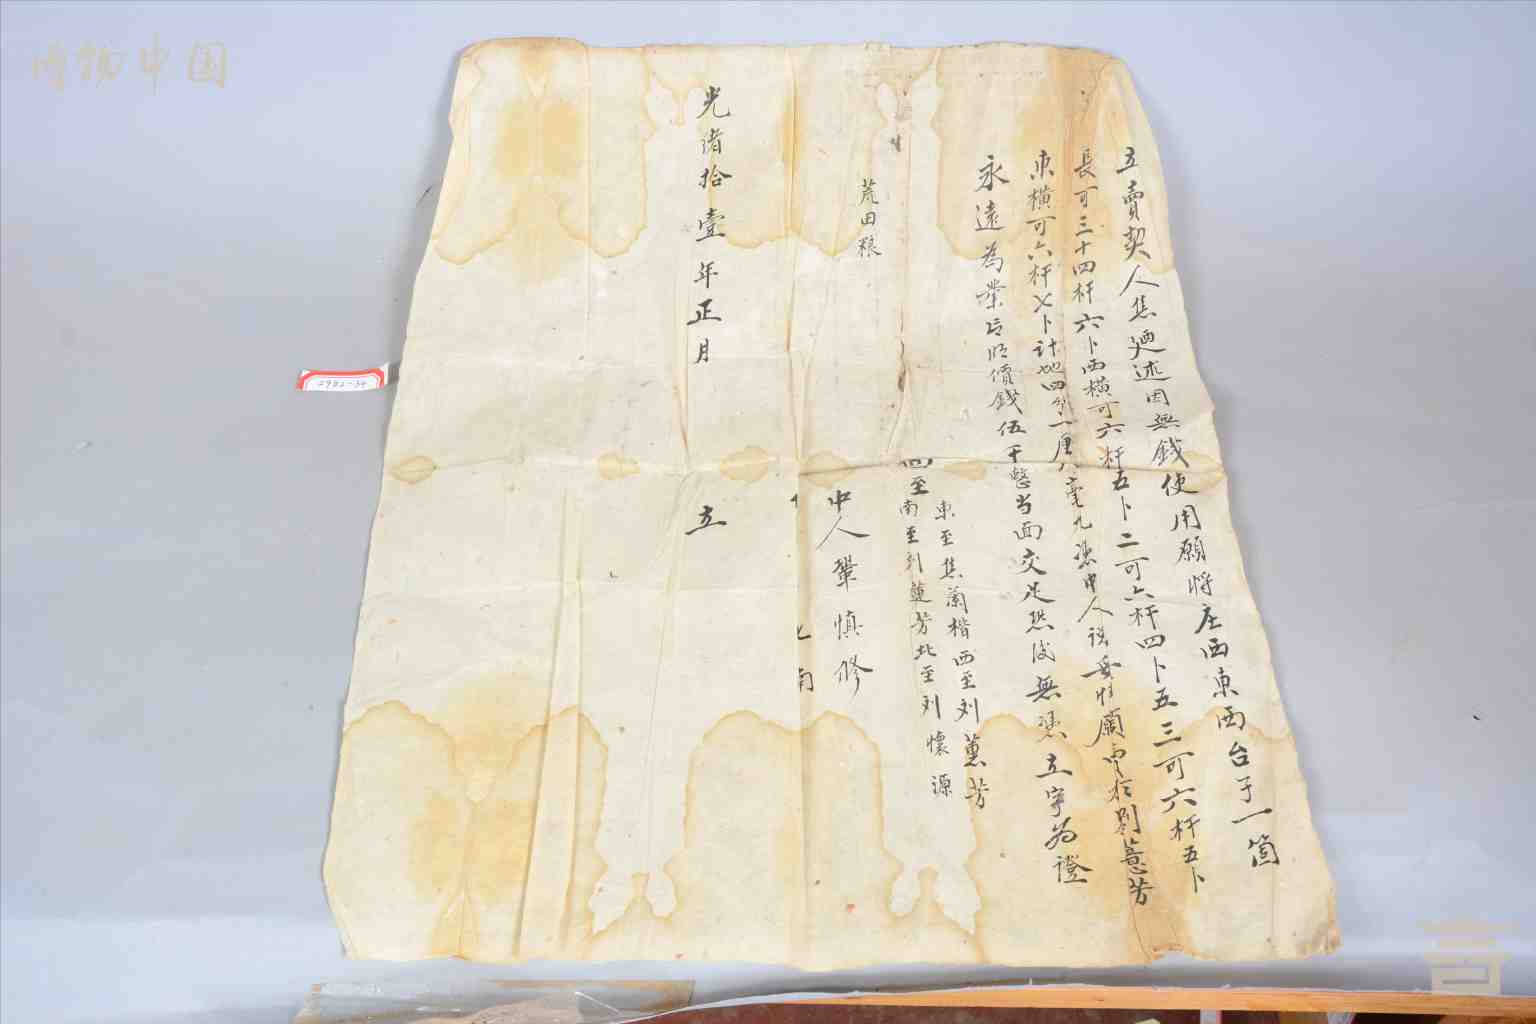 立賣契人焦廼述因無錢使用願將庄西東西台子一箇
長可三十四杆六卜西横可六杆五卜二可六杆四卜五三可六杆五卜
東横可六杆七卜計地四分二厘八毫九憑中人說妥情願賣於劉蕙芳
永遠為業言明價錢伍千整当面交足恐後無憑立字為證
東至焦蘭楷西至刘蕙芳
四至
南至刘蓮芳北至刘懷源
荒田粮
中人鞏慎修
南
光緒拾壹年正月
立
2902-34
博物中国